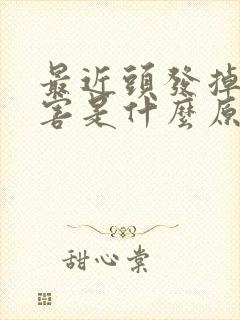 最近頭發掉
害是什麼原
甜心棠